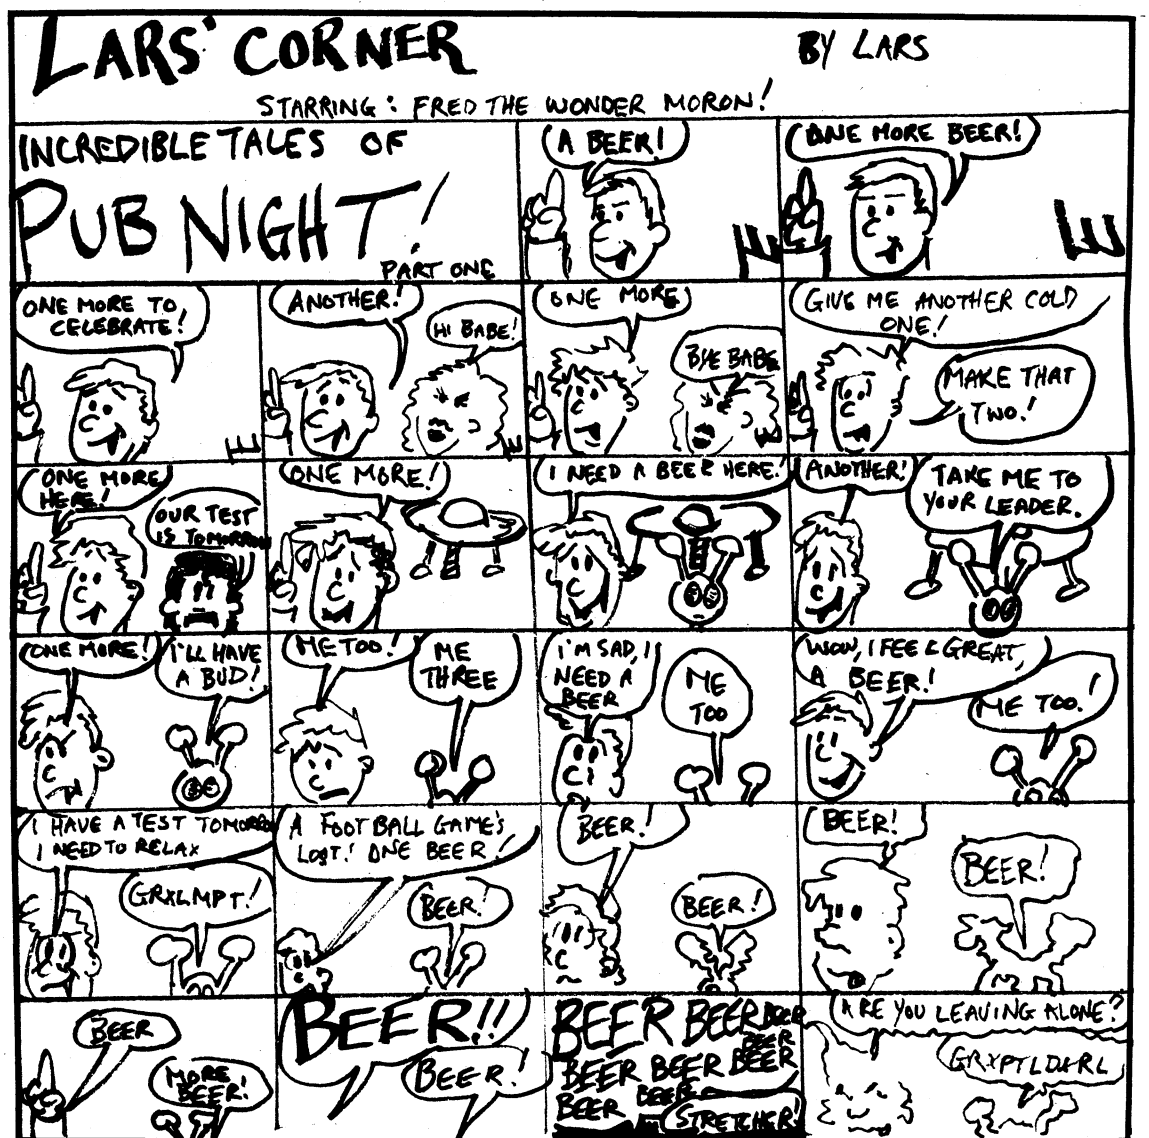 LARS' CORNER
BY LARS
STARRING: FRED THE WONDER MORON!
INCREDIBLE TALES OF
PUB NIGHT!
PART ONE
A BEER!
ONE MORE BEER!
ONE MORE TO
CELEBRATE!
ANOTHER!
HI BABE!
ONE MORE
BYE BABE
GIVE ME ANOTHER COLD
ONE!
MAKE THAT
TWO!
ONE MORE
HERE!
OUR TEST
IS TOMORROW
ONE MORE!
I NEED A BEER HERE!
ANOTHER!
TAKE ME TO
YOUR LEADER.
ONE MORE!
I'LL HAVE
A BUD!
ME TOO!
ME
THREE
I'M SAD, I
NEED A
BEER
ME
TOO
WOW, I FEEL GREAT,
A BEER!
ME TOO!
I HAVE A TEST TOMORROW
I NEED TO RELAX
GRXLMPT!
A FOOTBALL GAME'S
LOST! ONE BEER!
BEER!
BEER!
BEER!
BEER!
BEER!
BEER
MORE
BEER!
BEER!!
BEER!
BEER BEER BEER
BEER
BEER BEER BEER
BEER
BEER
STRETCHER!
ARE YOU LEAVING ALONE?